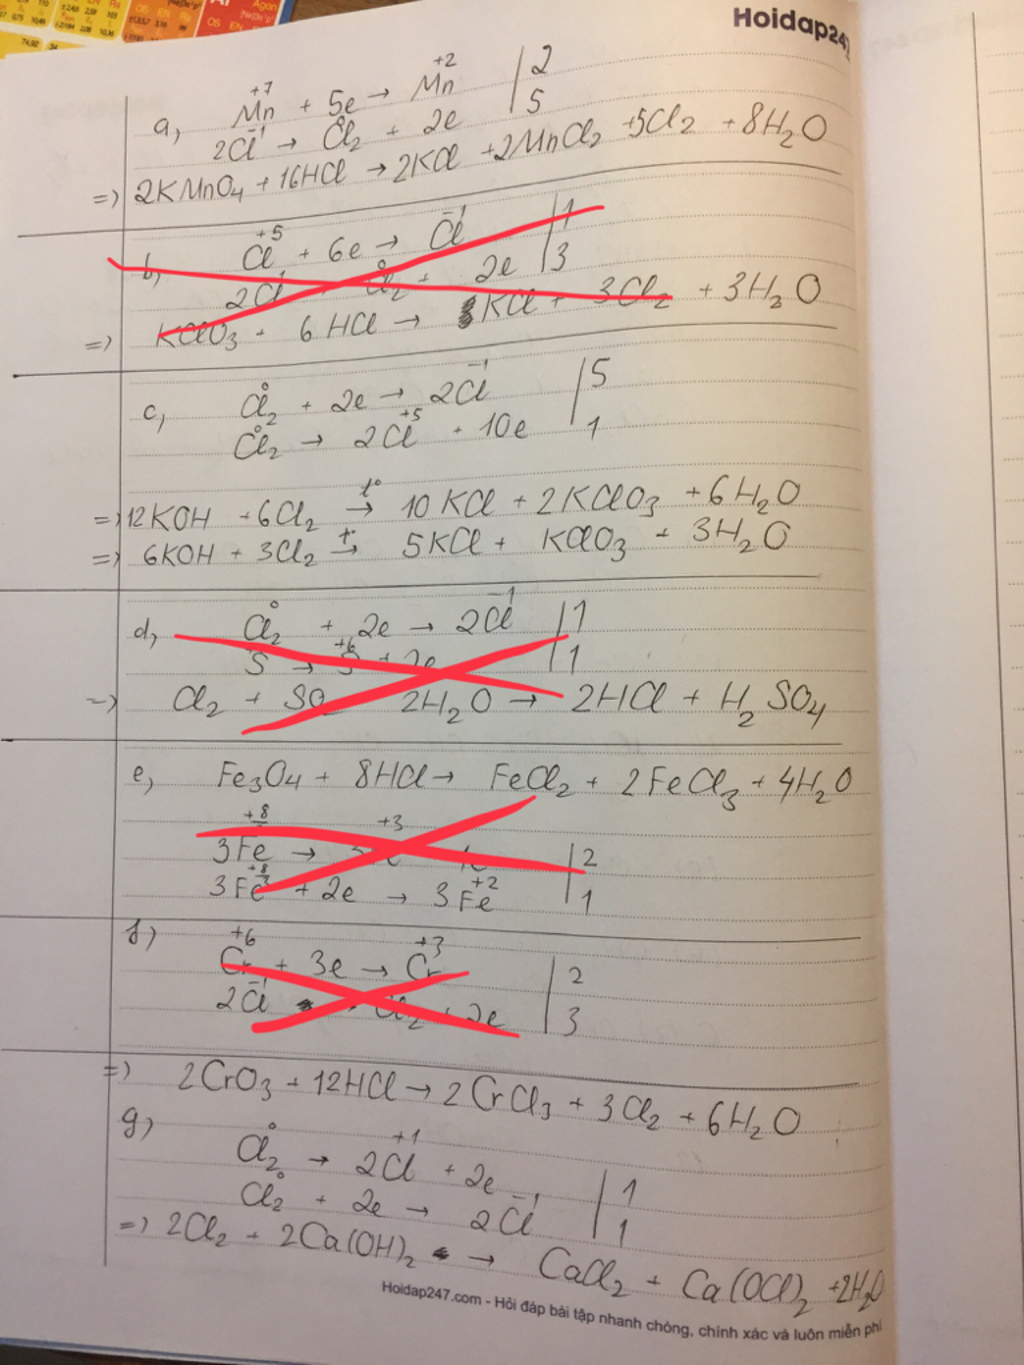 Hoidap247
a, Mn +7 + 5e → Mn +2 | 2
2Cl -1 → Cl2 0 + 2e | 5
=) 2KMnO4 + 16HCl → 2KCl + 2MnCl2 + 5Cl2 + 8H2O
b, Cl +5 + 6e → Cl -1 | 1
2Cl Cl2 + 2e | 3
=) KClO3 + 6HCl → KCl + 3Cl2 + 3H2O
c, Cl2 0 + 2e → 2Cl -1 | 5
Cl2 0 → 2Cl +5 + 10e | 1
=) 12KOH + 6Cl2 t° → 10KCl + 2KClO3 + 6H2O
=) 6KOH + 3Cl2 t° → 5KCl + KClO3 + 3H2O
d, Cl2 0 + 2e → 2Cl -1 | 1
S → S +6 + 2e | 1
=) Cl2 + SO 2H2O → 2HCl + H2SO4
e, Fe3O4 + 8HCl → FeCl2 + 2FeCl3 + 4H2O
3Fe +8 → +3 | 2
3Fe +8 + 2e → 3Fe +2 | 1
f) Cr +6 + 3e → Cr +3 | 2
2Cl -1 Cl2 + 2e | 3
=) 2CrO3 + 12HCl → 2CrCl3 + 3Cl2 + 6H2O
g) Cl2 0 → 2Cl +1 + 2e | 1
Cl2 0 + 2e → 2Cl -1 | 1
=) 2Cl2 + 2Ca(OH)2 → CaCl2 + Ca(OCl)2 + 2H2O
Hoidap247.com - Hỏi đáp bài tập nhanh chóng, chính xác và luôn miễn phí